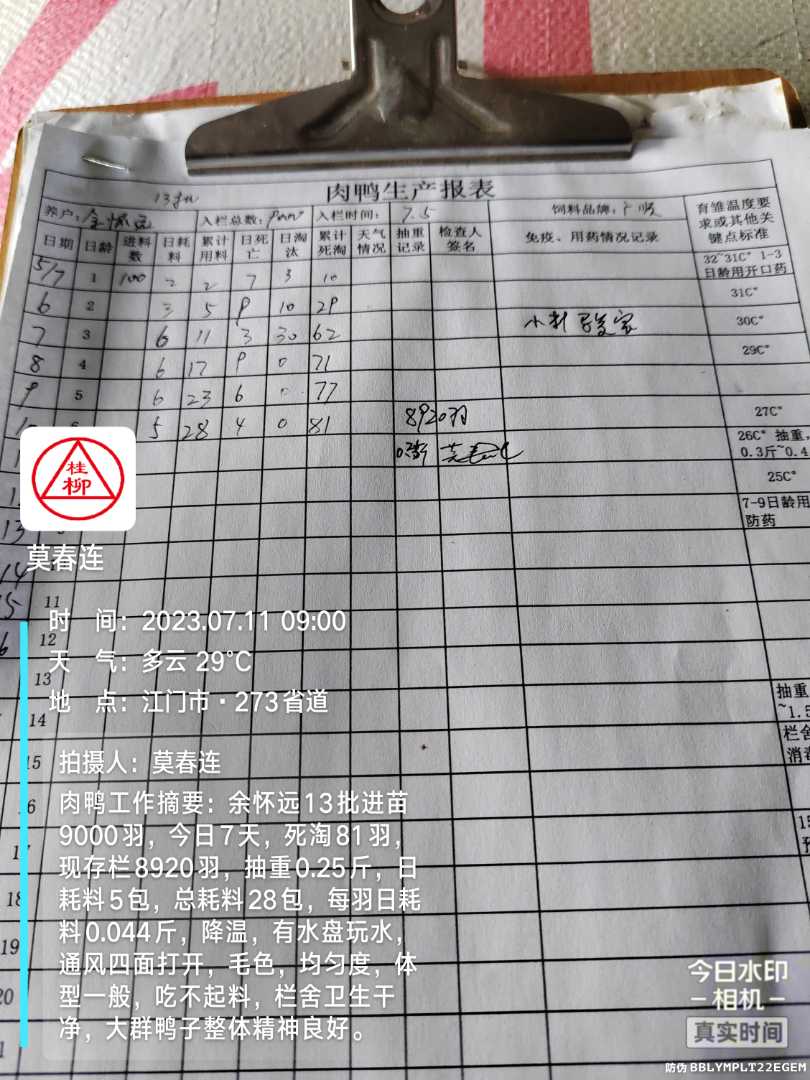 肉鸭生产报表
养户: 入栏总数: 入栏时间: 7.5 饲料品牌: 广顺 育雏温度要求或其他关键点标准
日期 日龄 进料数 日耗料 累计用料 日死亡 日淘汰 累计死淘 天气情况 抽重记录 检查人签名 免疫、用药情况记录
5/7 1 100 2 2 7 3 10 32~31C° 1-3日龄用开口药
6 2 3 5 9 10 29 31C°
7 3 6 11 3 30 62 30C°
8 4 6 17 9 0 71 29C°
9 5 6 23 6 0 77
5 28 4 0 81 8920羽 27C°
26C° 抽重,
0.3斤~0.4
25C°
7-9日龄用
防药
13
14
15 11
12
13
14
抽重
~1.5
栏舍
消毒
15
16
17
18
19
20
桂柳
莫春连
时 间: 2023.07.11 09:00
天 气: 多云 29°C
地 点: 江门市·273省道
拍摄人: 莫春连
肉鸭工作摘要: 余怀远13批进苗
9000羽, 今日7天, 死淘81羽,
现存栏8920羽, 抽重0.25斤, 日
耗料5包, 总耗料28包, 每羽日耗
料0.044斤, 降温, 有水盘玩水,
通风四面打开, 毛色, 均匀度, 体
型一般, 吃不起料, 栏舍卫生干
净, 大群鸭子整体精神良好。
今日水印
-相机-
真实时间
防伪 BBLYMPLT22EGEM